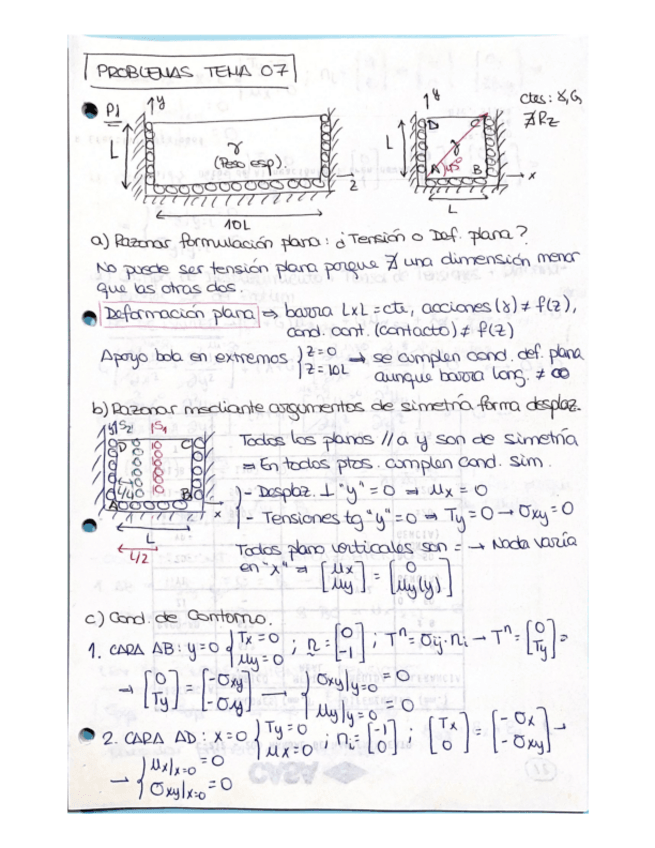 PROBLEMAS TEMA 07
P1
y
L
γ
(Peso esp).
z
10L
y
D
C
L
γ
A
45º
B
x
L
ctes: γ, G,
∄ Rz
a) Razonar formulación plana: ¿Tensión o Def. plana?
No puede ser tensión plana porque ∄ una dimensión menor
que las otras dos.
Deformación plana ⇒ barra L×L = cte, acciones (γ) ≠ f(z),
cond. cont. (contacto) ≠ f(z)
Apoyo bola en extremos { z=0 → se cumplen cond. def. plana
z=10L aunque barra long. ≠ ∞
b) Razonar mediante argumentos de simetría forma desplaz.
y
S2
S1
D
C
L/4
A
B
x
L
L/2
Todos los planos // a y son de simetría
⇒ En todos ptos. cumplen cond. sim.
- Desplaz. ⊥ "y" = 0 ⇒ μx = 0
- Tensiones tg "y" = 0 ⇒ Ty = 0 → σxy = 0
Todos plano verticales son = → Nada varía
en "x" ⇒ [μx μy] = [0 μy(y)]
c) Cond. de Contorno.
1. CARA AB: y=0 { Tx = 0 μy = 0 ; n = [0 -1] ; T^n = σij·ni → T^n = [0 Ty] =
→ [0 Ty] = [-σxy -σy] → { σxy|y=0 = 0 μy|y=0 = 0
2. CARA AD: x=0 { Ty = 0 μx = 0 ; ni = [-1 0] ; [Tx 0] = [-σx -σxy] →
→ { μx|x=0 = 0 σxy|x=0 = 0